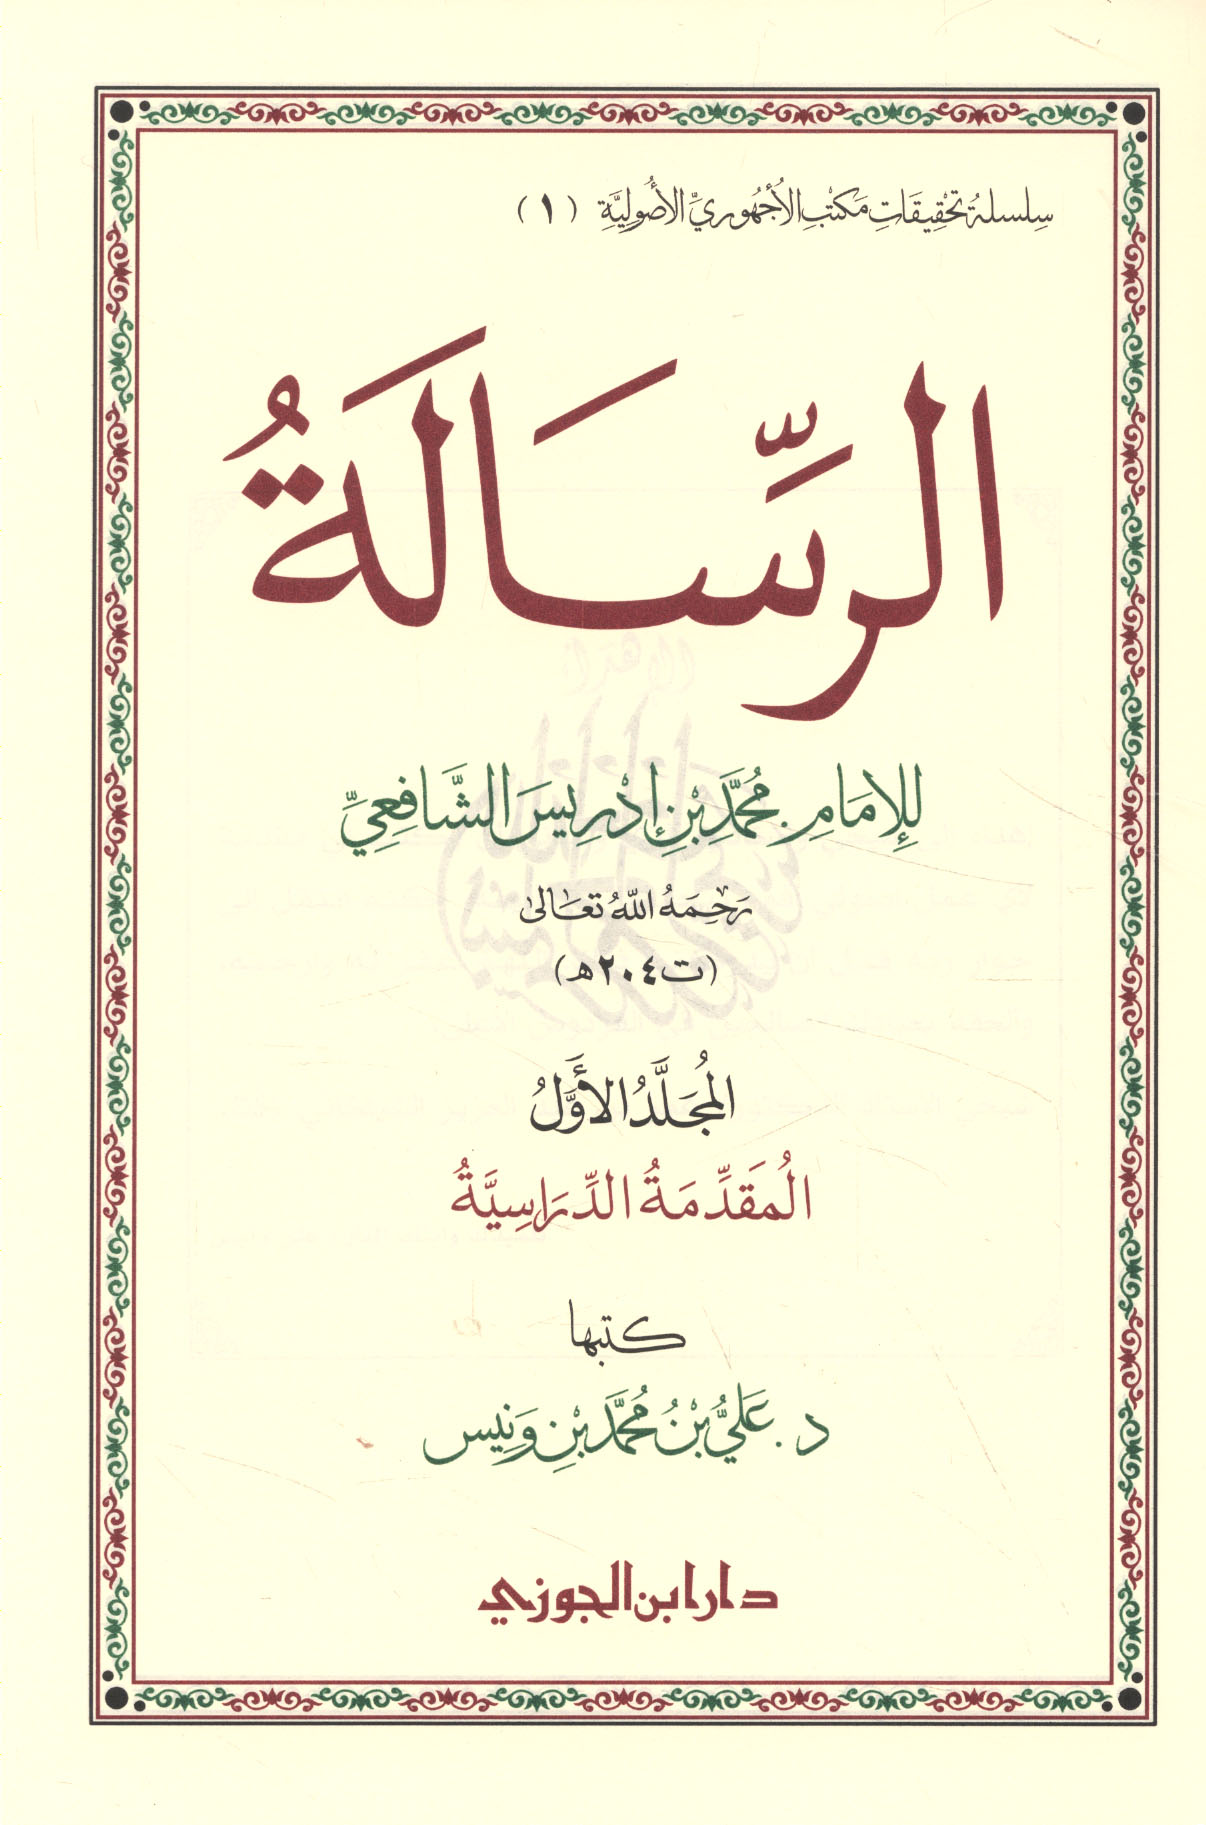 سِلسلةُ تحقِيقَاتِ مَكتبِ الأُجْهُوريِّ الأصُوليَّةِ (١)
الرِّسَالَةُ
لِلإمَامِ مُحَمَّدِ بْنِ إدْرِيسَ الشَّافِعِيِّ
رَحِمَهُ اللهُ تعَالىٰ
(ت ٢٠٤هـ)
المُجَلَّدُ الأَوَّلُ
المُقَدِّمَةُ الدِّرَاسِيَّةُ
كتبها
د. عَليُّ بْنُ مُحَمَّدِ بْنِ وَنِيس
دار ابن الجوزي